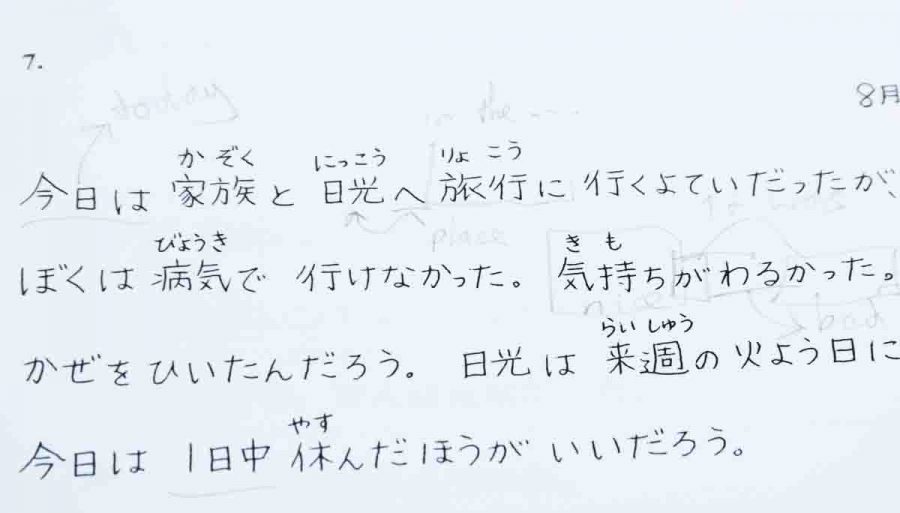 7.
8月
かぞく にっこう りょこう
今日は 家族と 日光へ 旅行に 行くよていだったが、
びょうき きも
ぼくは 病気で 行けなかった。 気持ちがわるかった。
らいしゅう
かぜをひいたんだろう。 日光は 来週の火よう日に
やす
今日は 1日中 休んだほうが いいだろう。
in the ...
place